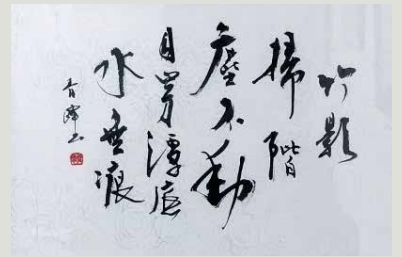 竹影
掃階
塵不動
月穿潭底
水無痕